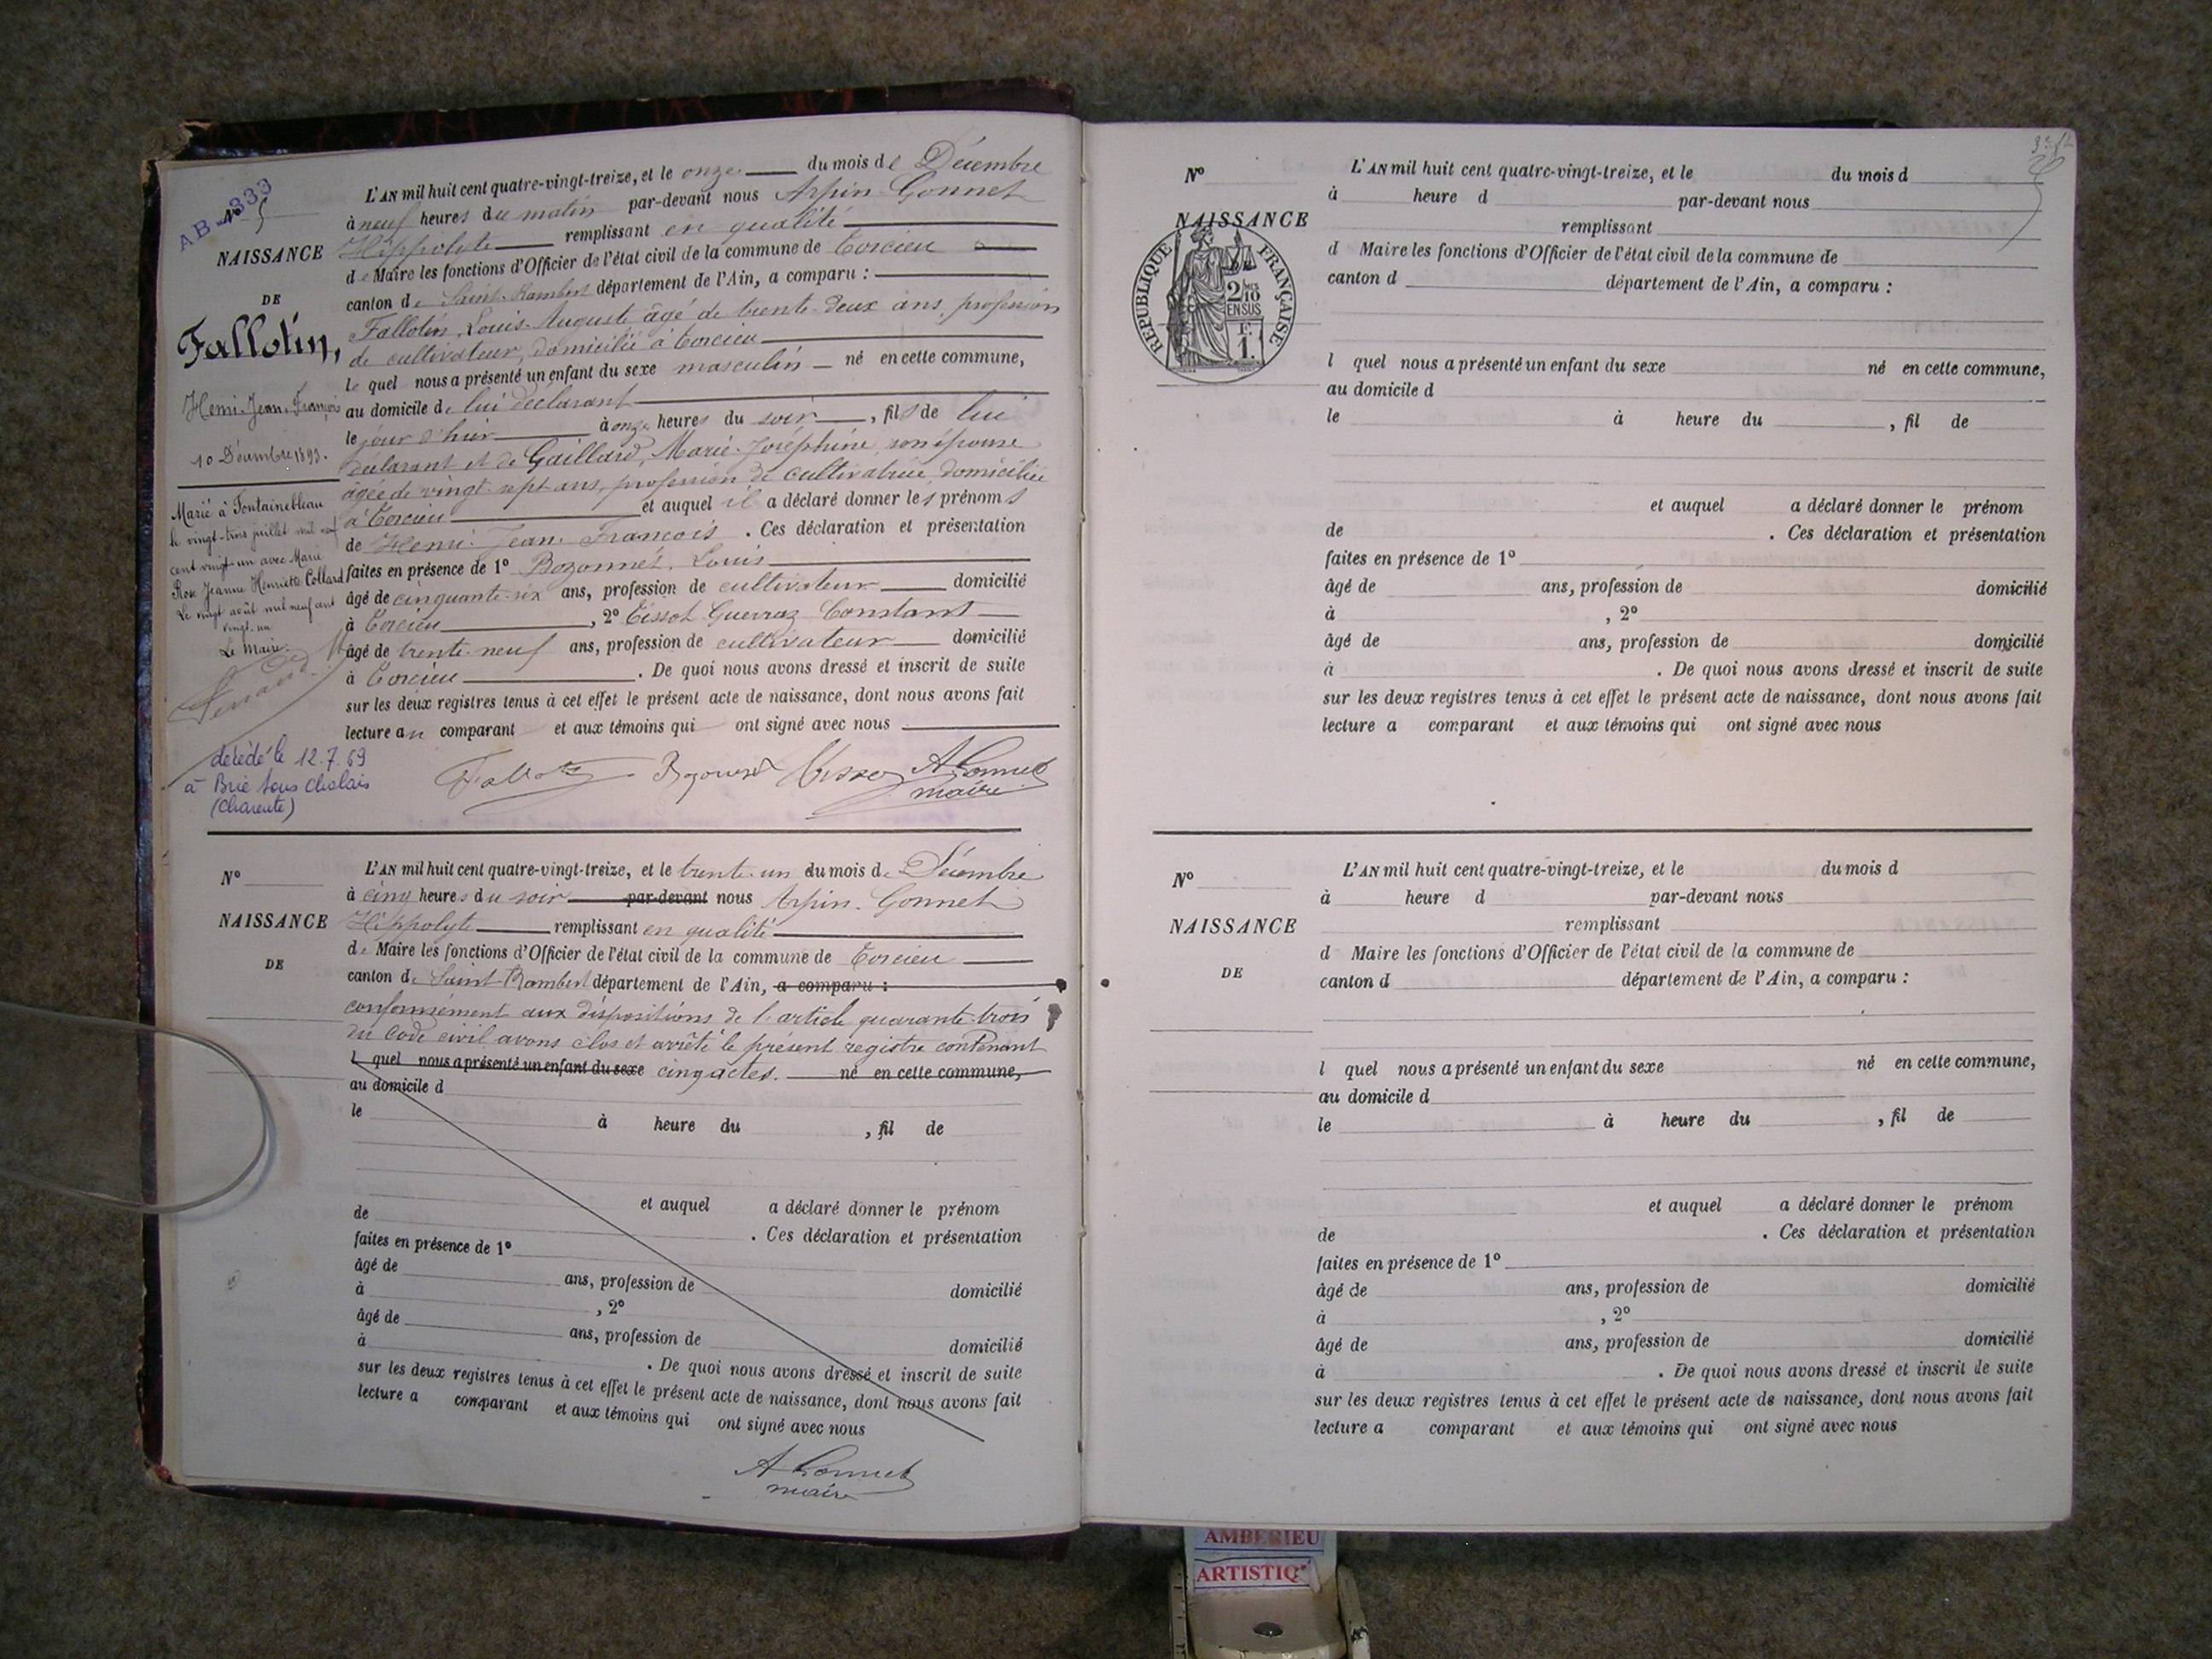 AB 333
N° 5
NAISSANCE
DE
Fallotin,
Henri-Jean-François
10 Décembre 1893.
Marié à Fontainebleau
le vingt-trois juillet mil neuf
cent vingt-un avec Marie
Rose Jeanne Henriette Collard
Le vingt août mil neuf cent
vingt-un
Le Maire.
décédé le 12.7.69
à Brie sous Chalais
(Charente)
L'AN mil huit cent quatre-vingt-treize, et le onze du mois de Décembre
à neuf heures du matin par-devant nous Arpin-Gonnet
Hippolyte remplissant en qualité
de Maire les fonctions d'Officier de l'état civil de la commune de Torcieu
canton de Saint-Rambert département de l'Ain, a comparu :
Fallotin, Louis-Auguste âgé de trente-deux ans, profession
de cultivateur, domicilié à Torcieu
le quel nous a présenté un enfant du sexe masculin né en cette commune,
au domicile de lui déclarant
le jour d'hier à onze heures du soir, fils de lui
déclarant et de Gaillard, Marie-Joséphine, son épouse
âgée de vingt-sept ans, profession de cultivatrice, domiciliée
à Torcieu et auquel il a déclaré donner les prénoms
de Henri-Jean-François. Ces déclaration et présentation
faites en présence de 1° Bozonnet, Louis
âgé de cinquante-six ans, profession de cultivateur domicilié
à Torcieu, 2° Tissot-Guerraz Constant
âgé de trente-neuf ans, profession de cultivateur domicilié
à Torcieu. De quoi nous avons dressé et inscrit de suite
sur les deux registres tenus à cet effet le présent acte de naissance, dont nous avons fait
lecture au comparant et aux témoins qui ont signé avec nous
Fallotin Bozonnet Tissot A Gonnet
maire
N°
NAISSANCE
DE
L'AN mil huit cent quatre-vingt-treize, et le trente-un du mois de Décembre
à cinq heures du soir par-devant nous Arpin-Gonnet
Hippolyte remplissant en qualité
de Maire les fonctions d'Officier de l'état civil de la commune de Torcieu
canton de Saint-Rambert département de l'Ain, a comparu :
conformément aux dispositions de l'article quarante-trois
du Code civil avons clos et arrêté le présent registre contenant
l quel nous a présenté un enfant du sexe cinq actes. né en cette commune,
au domicile d
le à heure du , fil de
et auquel a déclaré donner le prénom
de . Ces déclaration et présentation
faites en présence de 1°
âgé de ans, profession de domicilié
à , 2°
âgé de ans, profession de domicilié
à . De quoi nous avons dressé et inscrit de suite
sur les deux registres tenus à cet effet le présent acte de naissance, dont nous avons fait
lecture a comparant et aux témoins qui ont signé avec nous
A Gonnet
maire
N°
NAISSANCE
REPUBLIQUE FRANÇAISE
2/10
EN SUS
F.
1.
L'AN mil huit cent quatre-vingt-treize, et le du mois d
à heure d par-devant nous
remplissant
d Maire les fonctions d'Officier de l'état civil de la commune de
canton d département de l'Ain, a comparu :
l quel nous a présenté un enfant du sexe né en cette commune,
au domicile d
le à heure du , fil de
et auquel a déclaré donner le prénom
de . Ces déclaration et présentation
faites en présence de 1°
âgé de ans, profession de domicilié
à , 2°
âgé de ans, profession de domicilié
à . De quoi nous avons dressé et inscrit de suite
sur les deux registres tenus à cet effet le présent acte de naissance, dont nous avons fait
lecture a comparant et aux témoins qui ont signé avec nous
N°
NAISSANCE
DE
L'AN mil huit cent quatre-vingt-treize, et le du mois d
à heure d par-devant nous
remplissant
d Maire les fonctions d'Officier de l'état civil de la commune de
canton d département de l'Ain, a comparu :
l quel nous a présenté un enfant du sexe né en cette commune,
au domicile d
le à heure du , fil de
et auquel a déclaré donner le prénom
de . Ces déclaration et présentation
faites en présence de 1°
âgé de ans, profession de domicilié
à , 2°
âgé de ans, profession de domicilié
à . De quoi nous avons dressé et inscrit de suite
sur les deux registres tenus à cet effet le présent acte de naissance, dont nous avons fait
lecture a comparant et aux témoins qui ont signé avec nous
AMBERIEU
ARTISTIQ